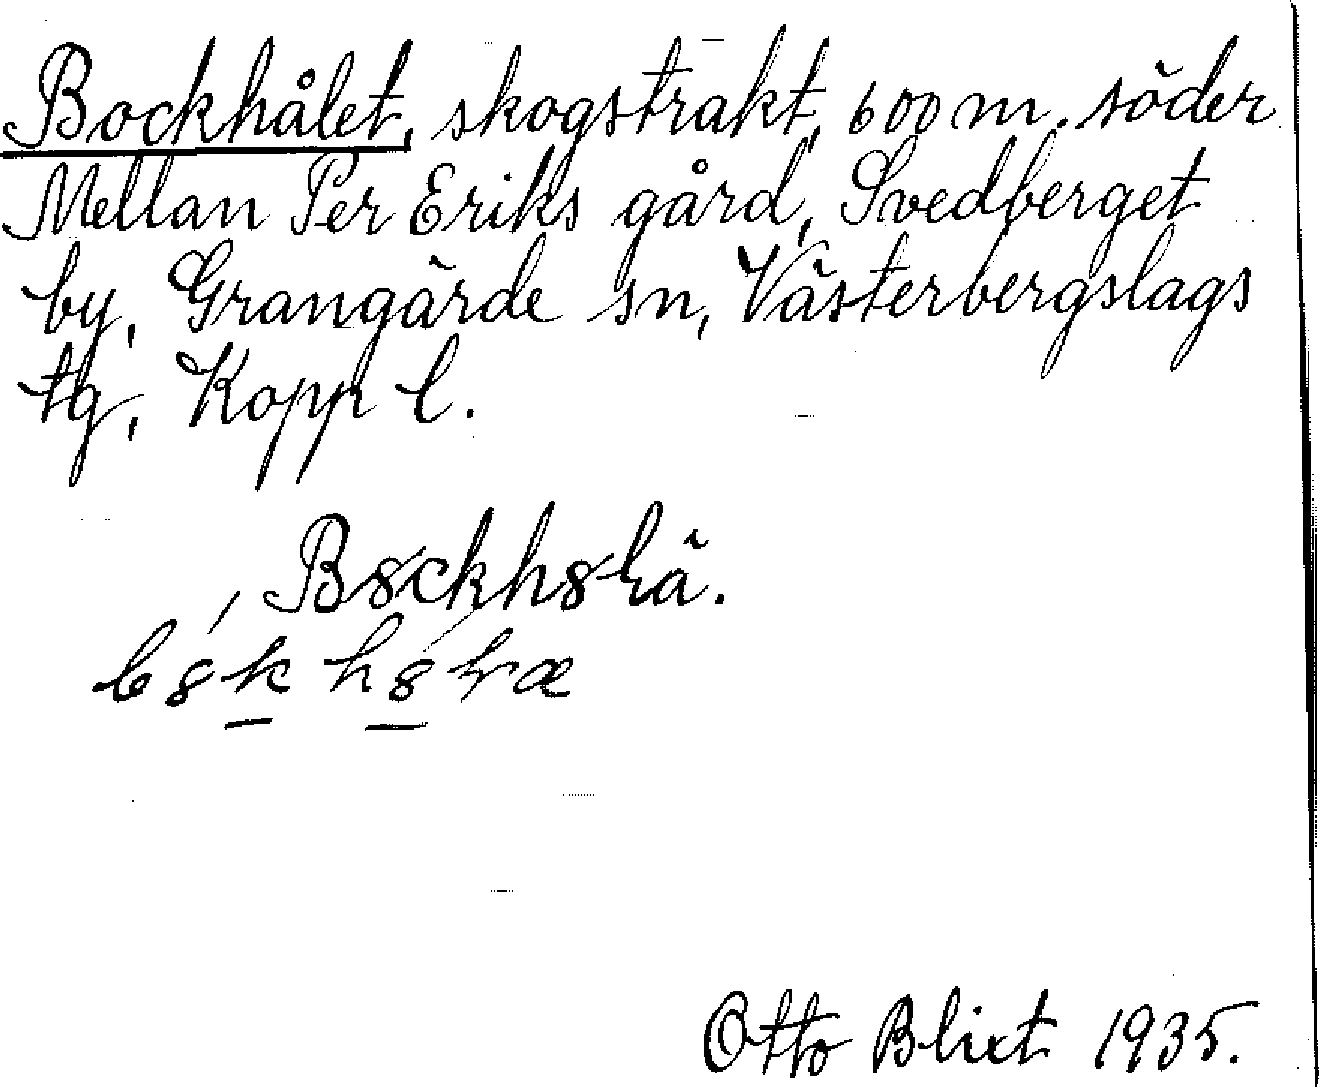 Bockhålet, skogstrakt, 600 m. söder
Mellan Per Eriks gård, Svedberget
by, Grangärde sn, Västerbergslags
tg, Kopp l.
Otto Blixt 1935.